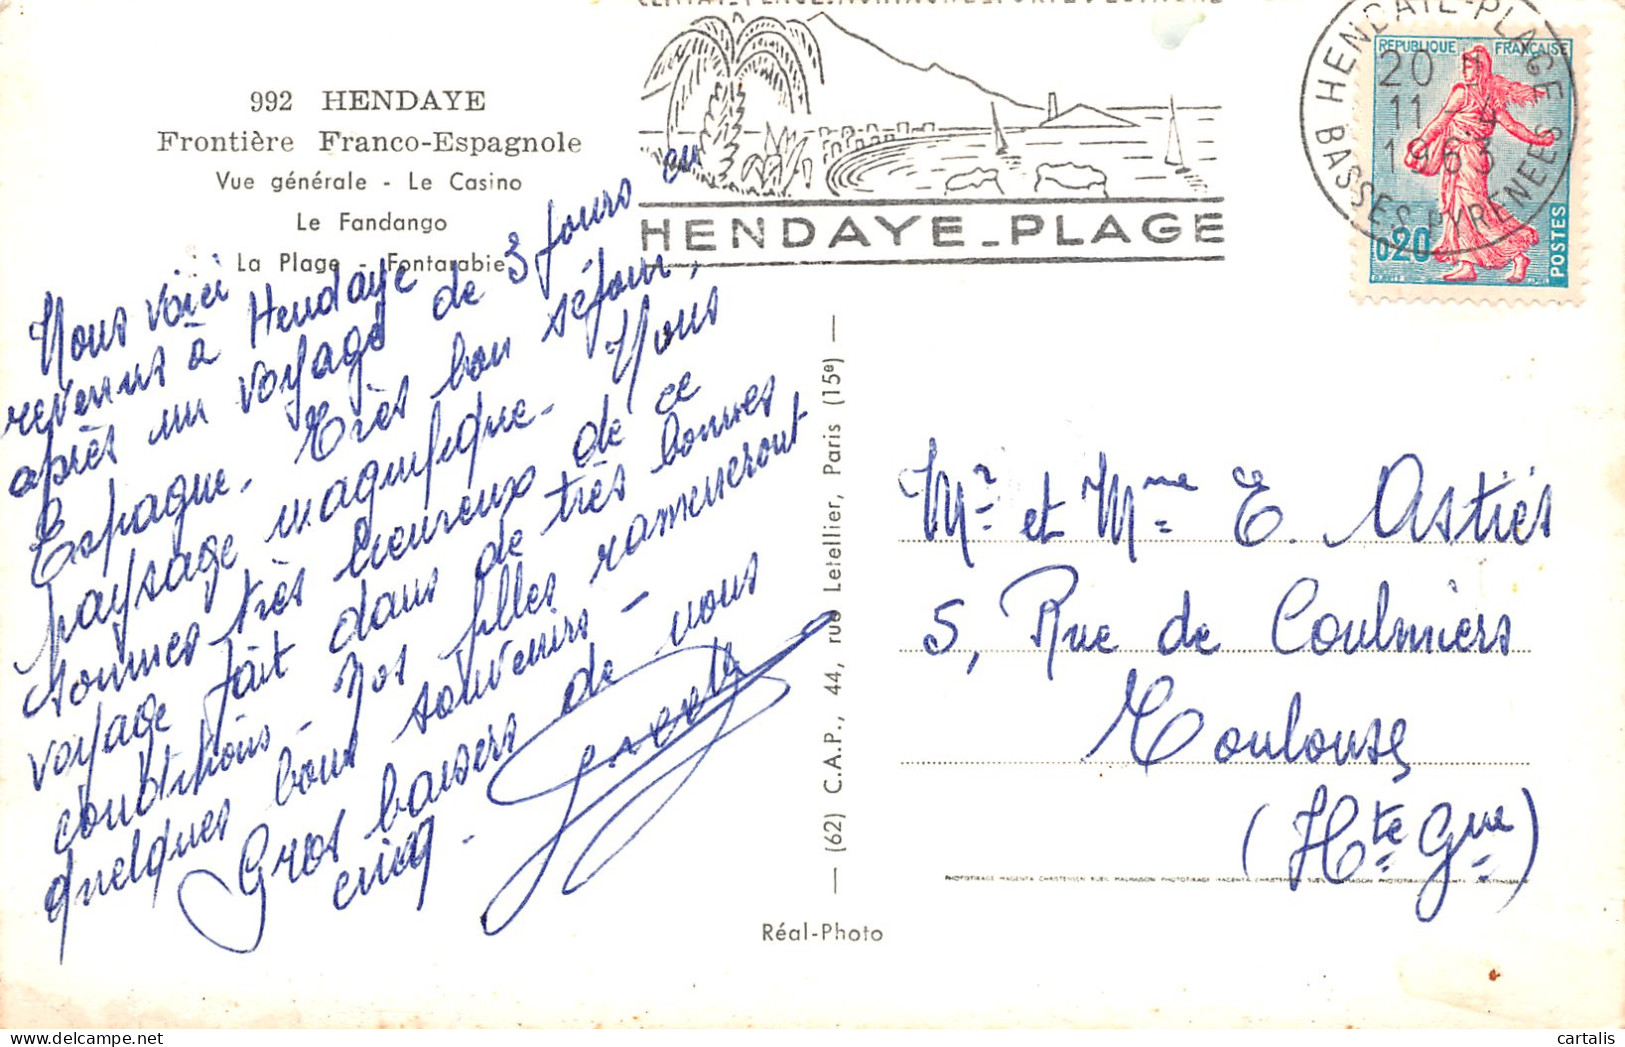 992 HENDAYE
Frontière Franco-Espagnole
Vue générale - Le Casino
Le Fandango
La Plage - Fontarabie
HENDAYE_PLAGE
HENDAYE-PLAGE
20 H
11 - 4
1963
BASSES PYRENEES
REPUBLIQUE FRANÇAISE
0,20
POSTES
Nous voici
revenus à Hendaye
après un voyage de 3 jours en
Espagne. Très bon séjour,
paysage magnifique. Nous
sommes très heureux de ce
voyage fait dans de très bonnes
conditions. Nos filles ramèneront
quelques bons souvenirs -
Gros baisers de nous
cinq -
(62) C.A.P., 44, rue Letellier, Paris (15e)
Réal-Photo
Mr et Mme E. Astiés
5, Rue de Coulmiers
Toulouse
(Hte Gne)
cartalis